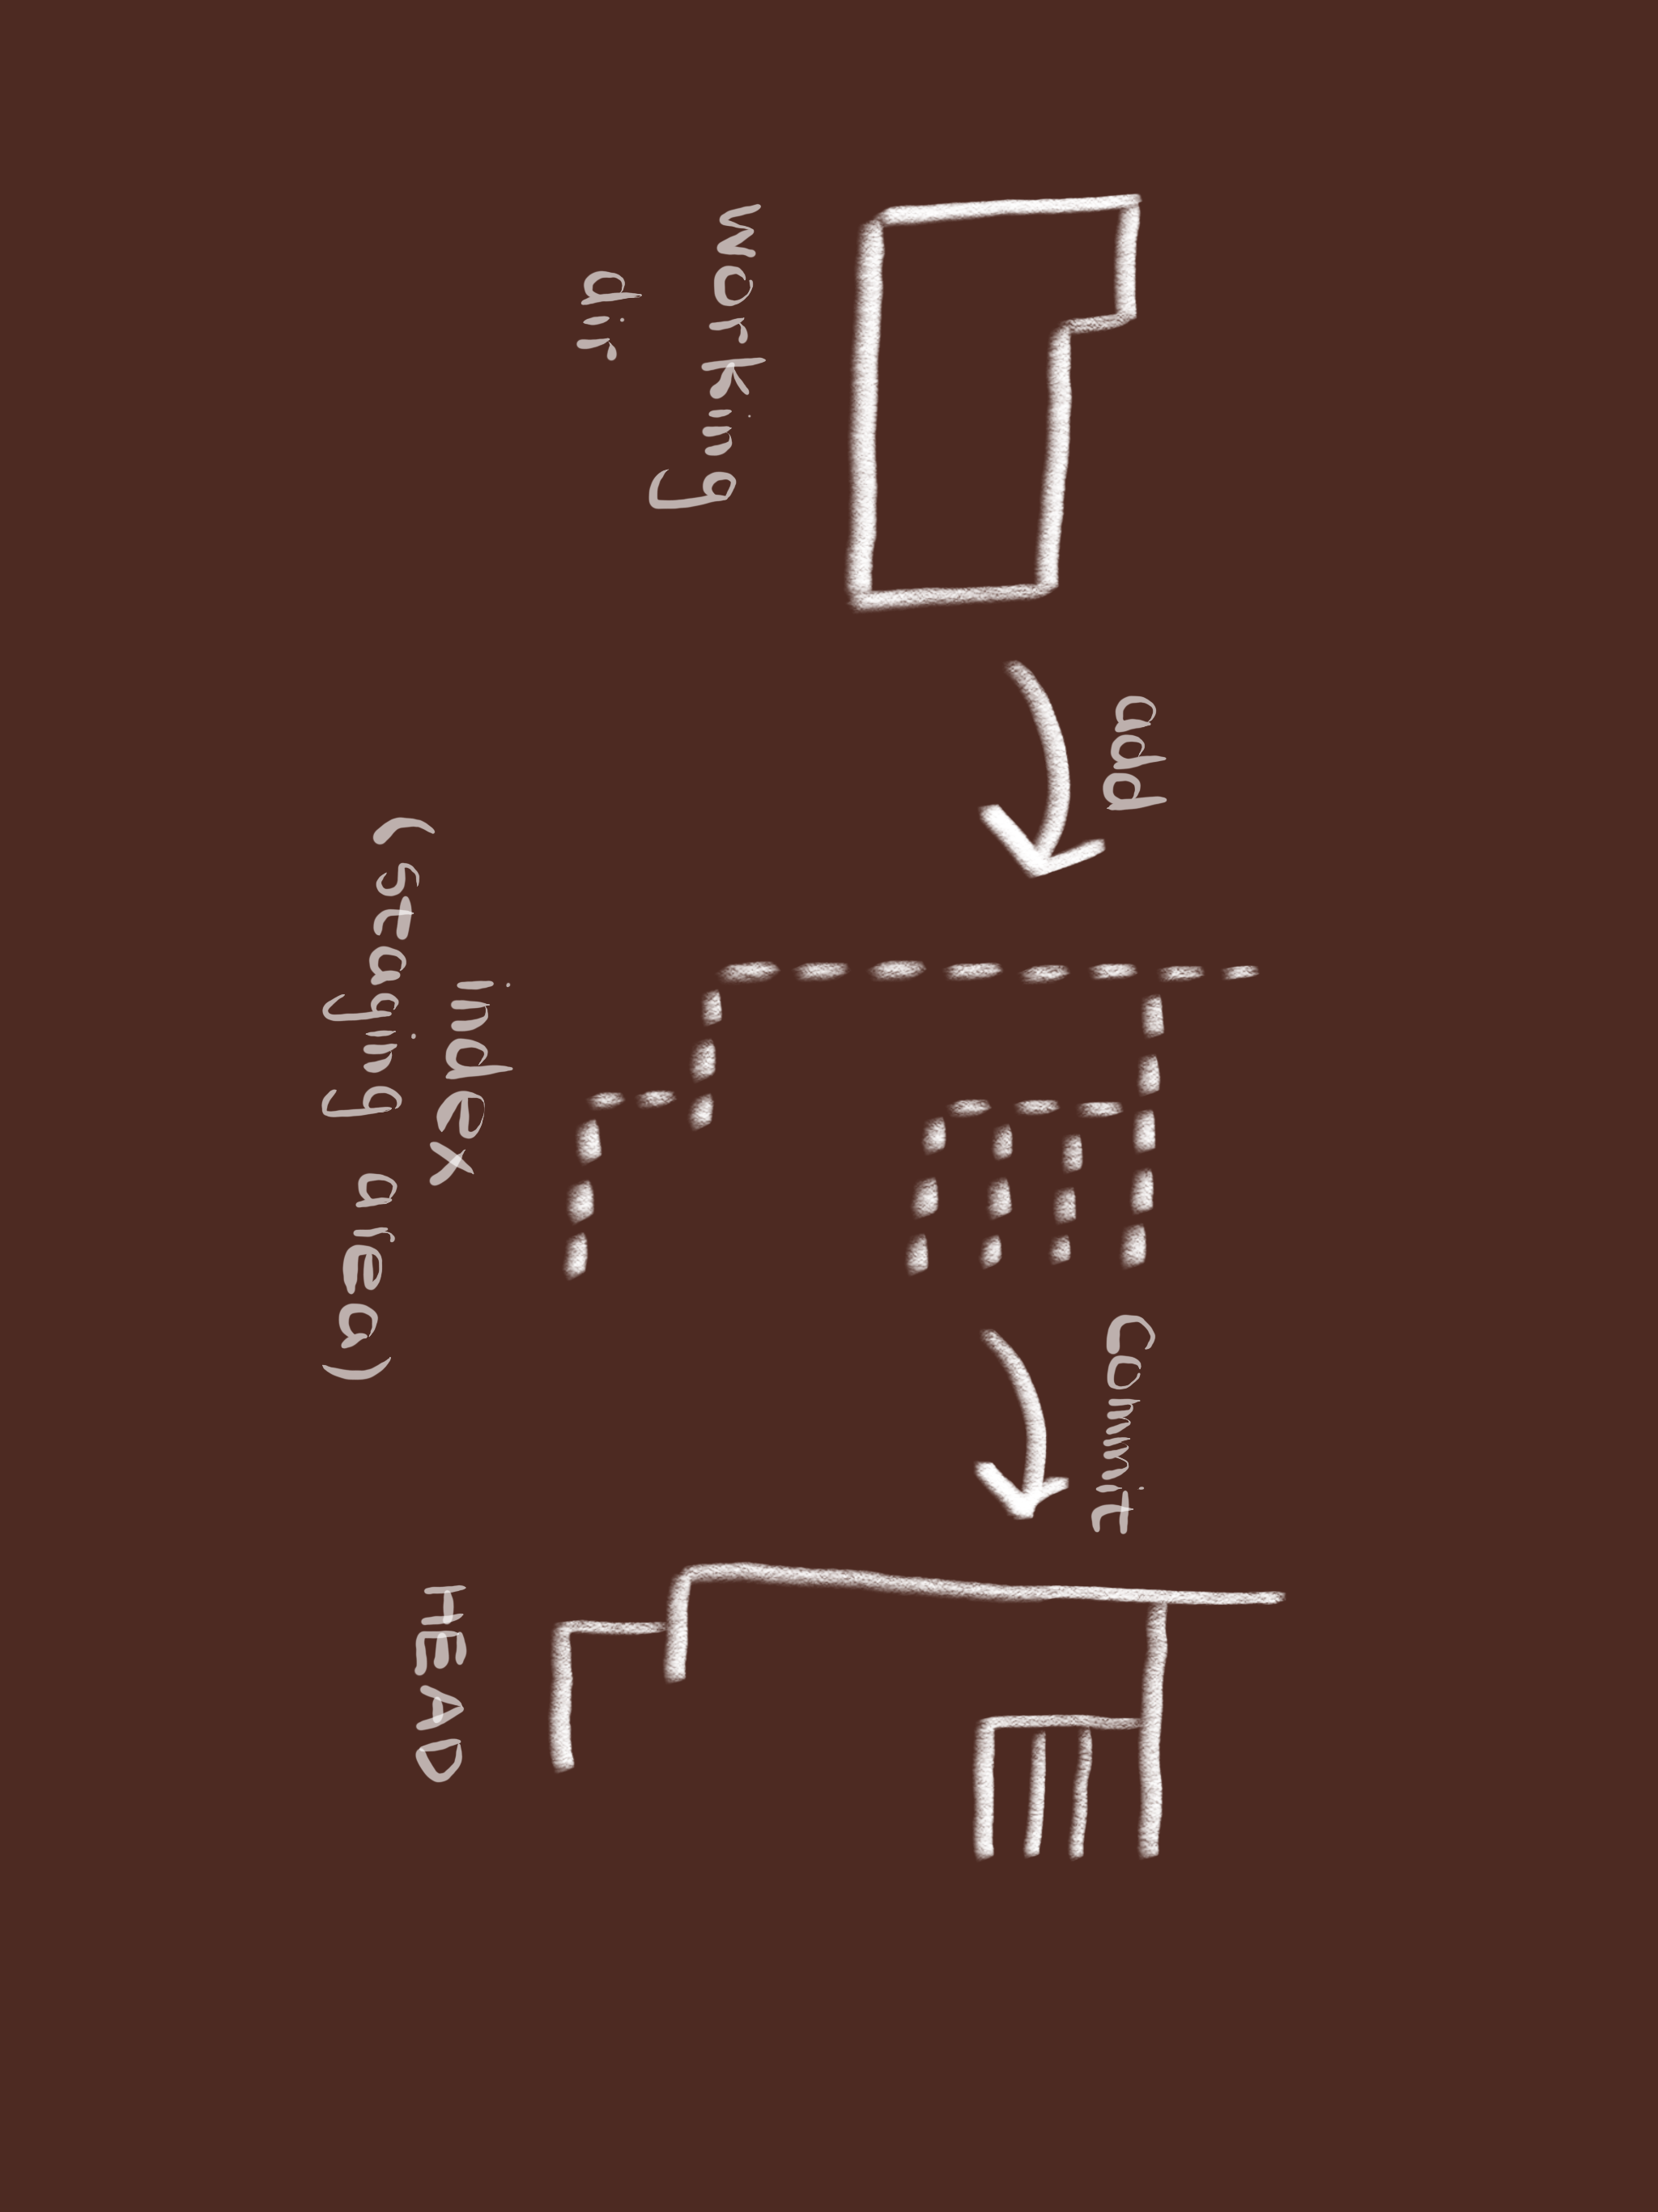 working
dir
add
index
(staging area)
commit
HEAD